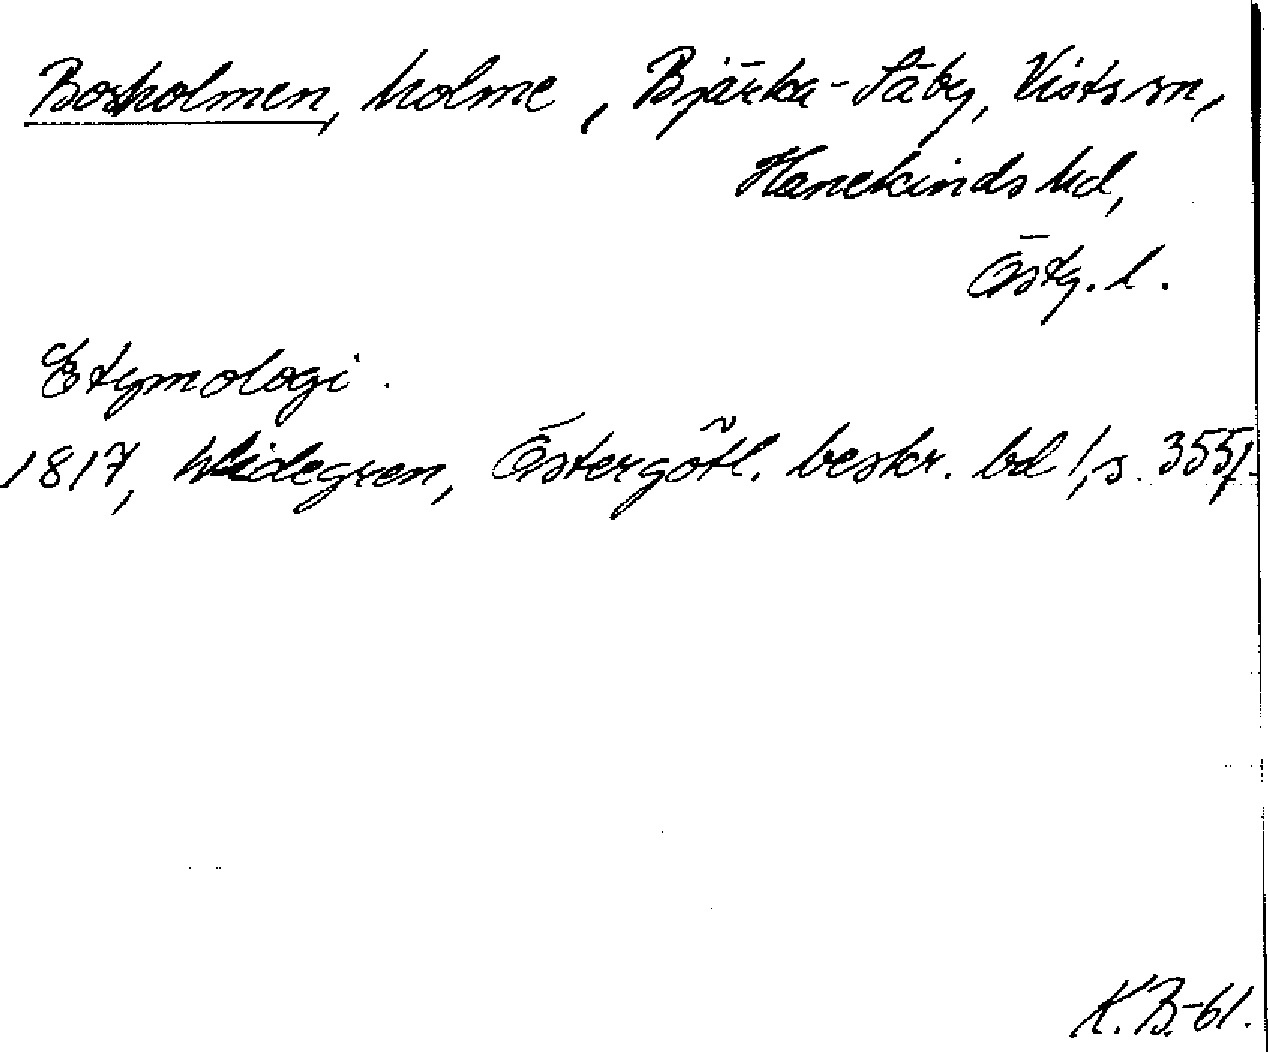 Bosholmen, holme, Bjärka-Säby, Vists sn,
Hanekinds hd,
Östg. l.
Etymologi.
1817, Widegren, Östergötl. beskr. bd 1, s. 355f.
K.B.-61.